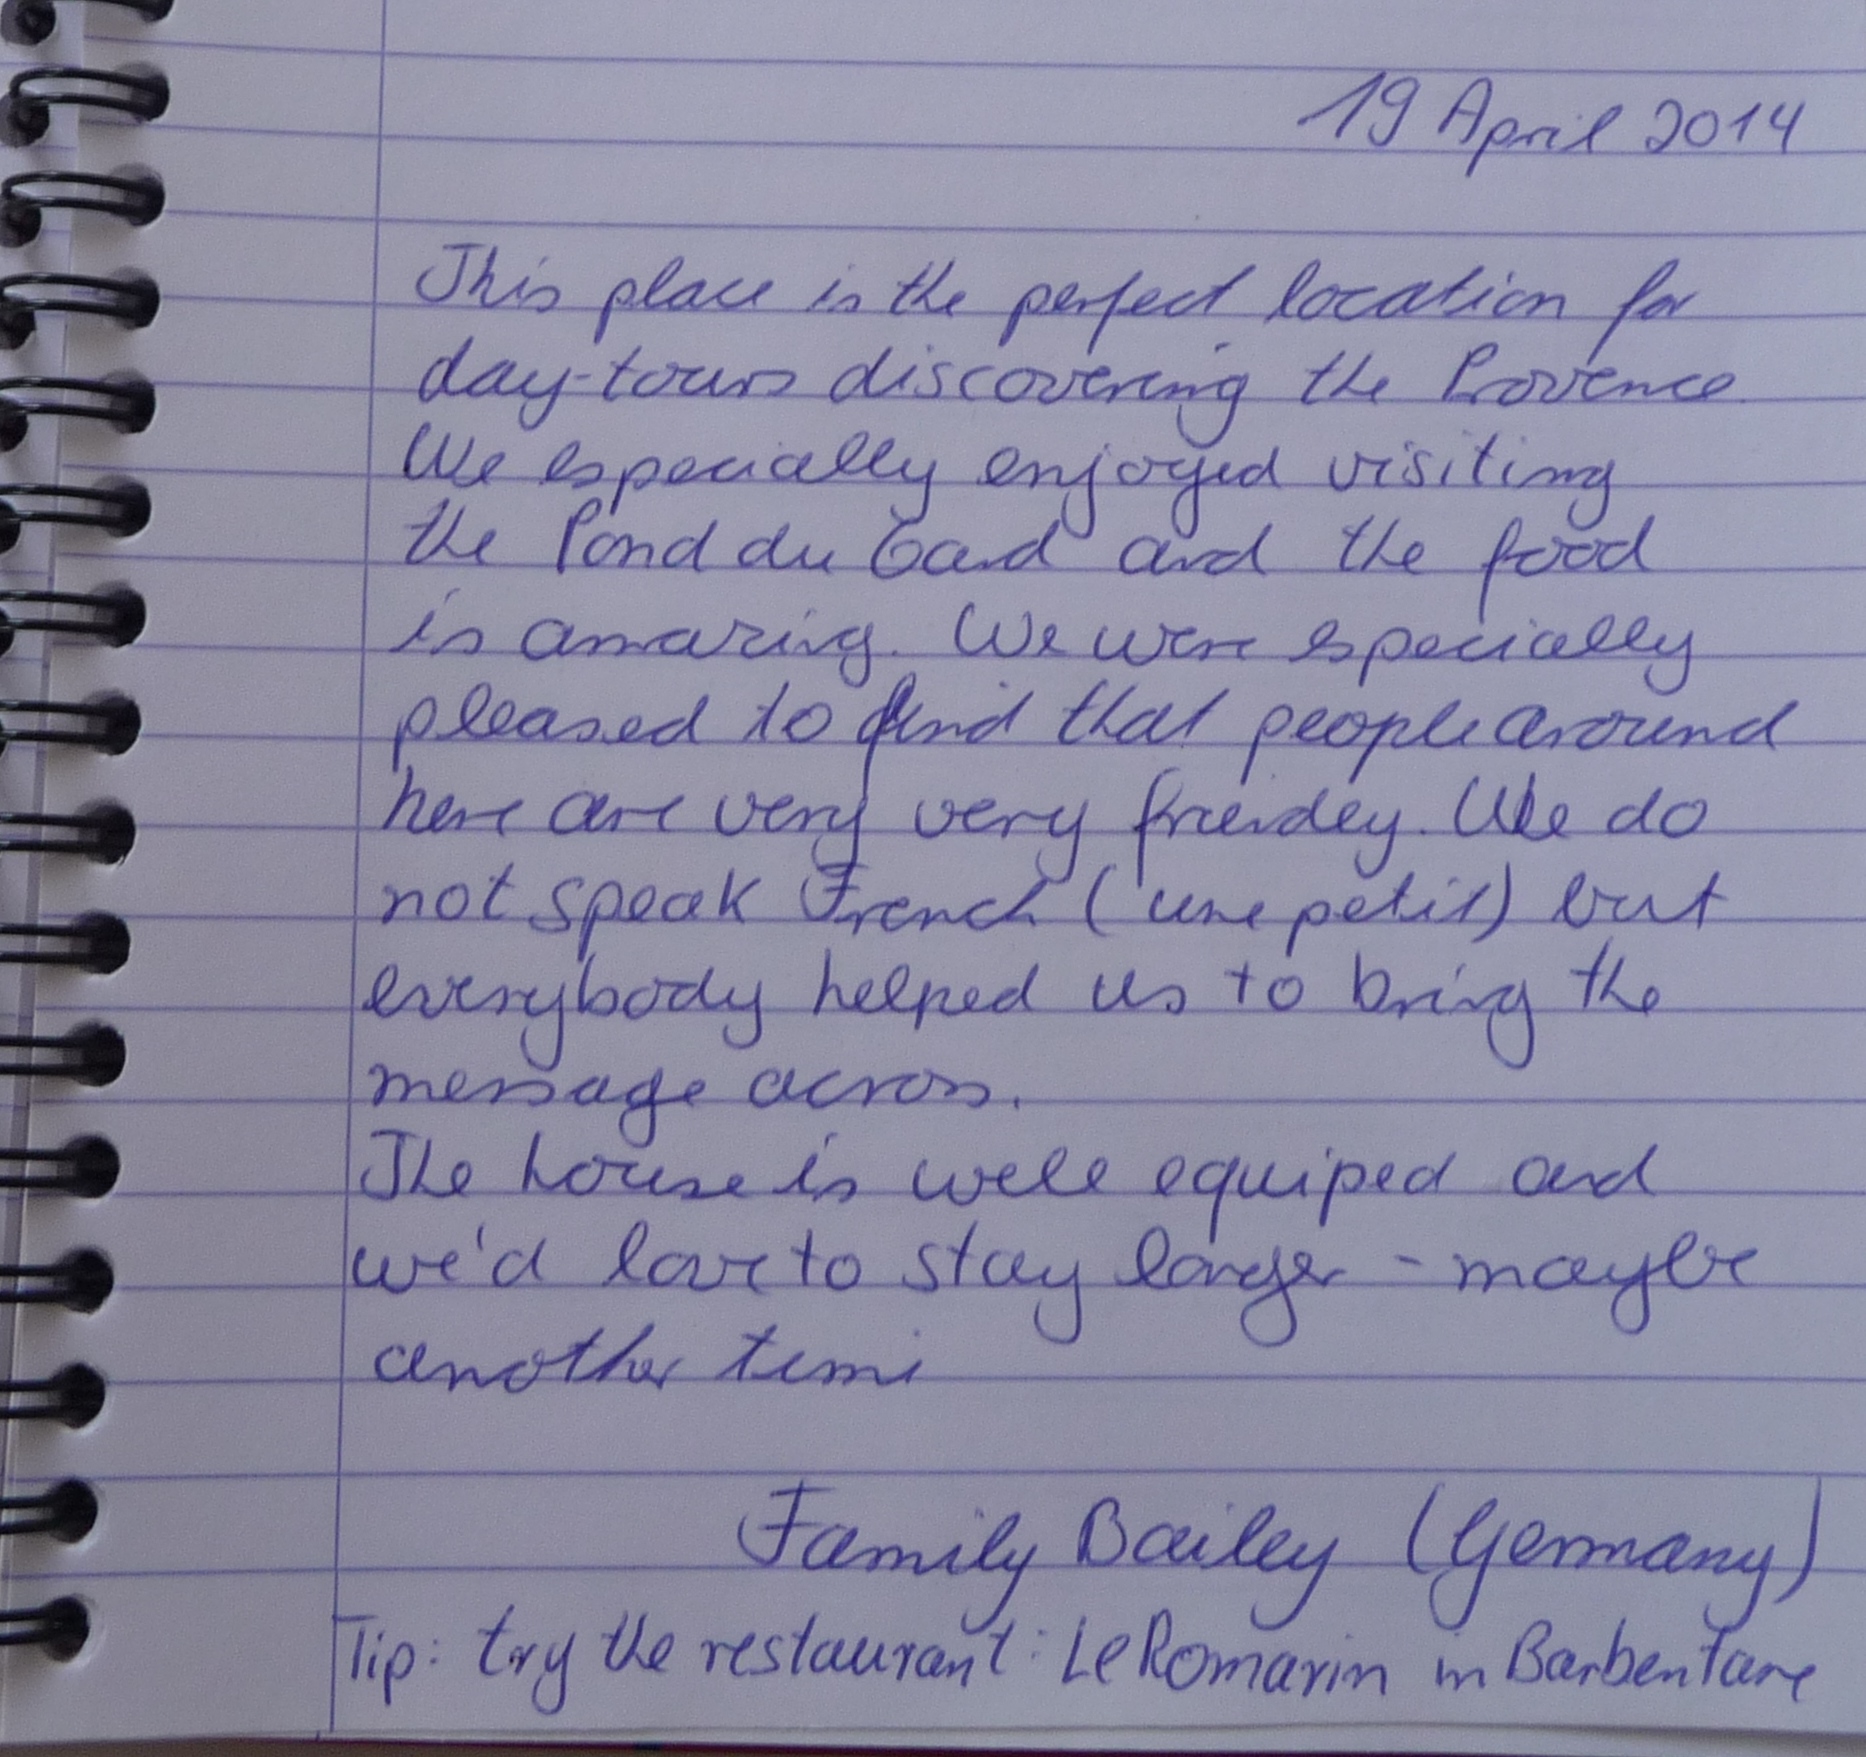 19 April 2014
This place is the perfect location for
day-tours discovering the Provence
We especially enjoyed visiting
the Pond du Gard and the food
is amazing. We were especially
pleased to find that people around
here are very very friendly. We do
not speak French (une petit) but
everybody helped us to bring the
message across.
The house is well equiped and
we'd love to stay longer - maybe
another time
Family Bailey (Germany)
Tip: try the restaurant: Le Romarin in Barbentane